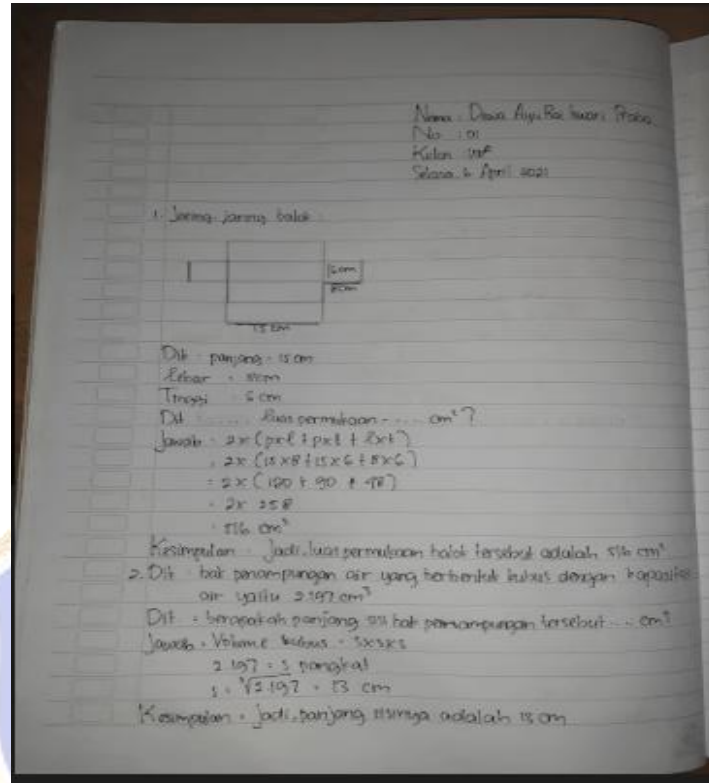 Nama : Dewa Ayu
No : 01
Kelas :
Selasa 6 April 2021
1. Jaring-jaring balok :
6 cm
8 cm
15 cm
Dik : panjang = 15 cm
Lebar = 8 cm
Tinggi = 6 cm
Dit : ...... luas permukaan .... cm² ?
Jawab = 2x (pxl + pxt + lxt)
= 2x (15x8 + 15x6 + 8x6)
= 2x (120 + 90 + 48)
= 2x 258
= 516 cm²
Kesimpulan = Jadi, luas permukaan balok tersebut adalah 516 cm²
2. Dik : bak penampungan air yang berbentuk kubus dengan kapasitas
air yaitu 2.197 cm³
Dit : berapakah panjang sisi bak penampungan tersebut ... cm?
Jawab = Volume kubus = sxsxs
2.197 = s pangkat
s = ³√2.197 = 13 cm
Kesimpulan = Jadi, panjang sisinya adalah 13 cm